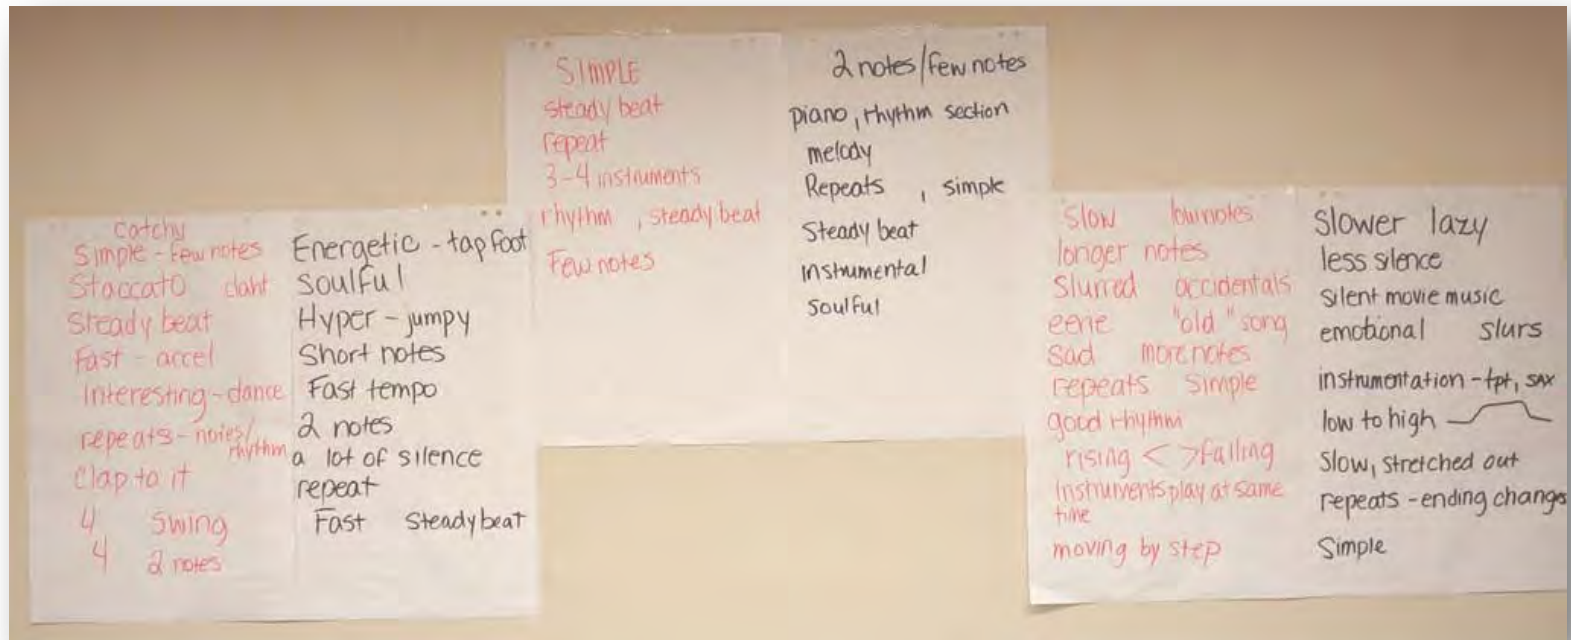 catchy
Simple - few notes
Staccato daht
Steady beat
Fast - accel
Interesting - dance
repeats - notes/
rhythm
Clap to it
4 Swing
4 2 notes
Energetic - tap foot
Soulful
Hyper - jumpy
Short notes
Fast tempo
2 notes
a lot of silence
repeat
Fast Steady beat
SIMPLE
steady beat
repeat
3-4 instruments
rhythm, steady beat
Few notes
2 notes/few notes
piano, rhythm section
melody
Repeats, simple
Steady beat
instrumental
Soulful
Slow low notes
longer notes
Slurred accidentals
eerie "old" song
Sad more notes
repeats simple
good rhythm
rising < > falling
instruments play at same
time
moving by step
Slower lazy
less silence
Silent movie music
emotional slurs
instrumentation - tpt, sax
low to high
Slow, stretched out
repeats - ending changes
Simple